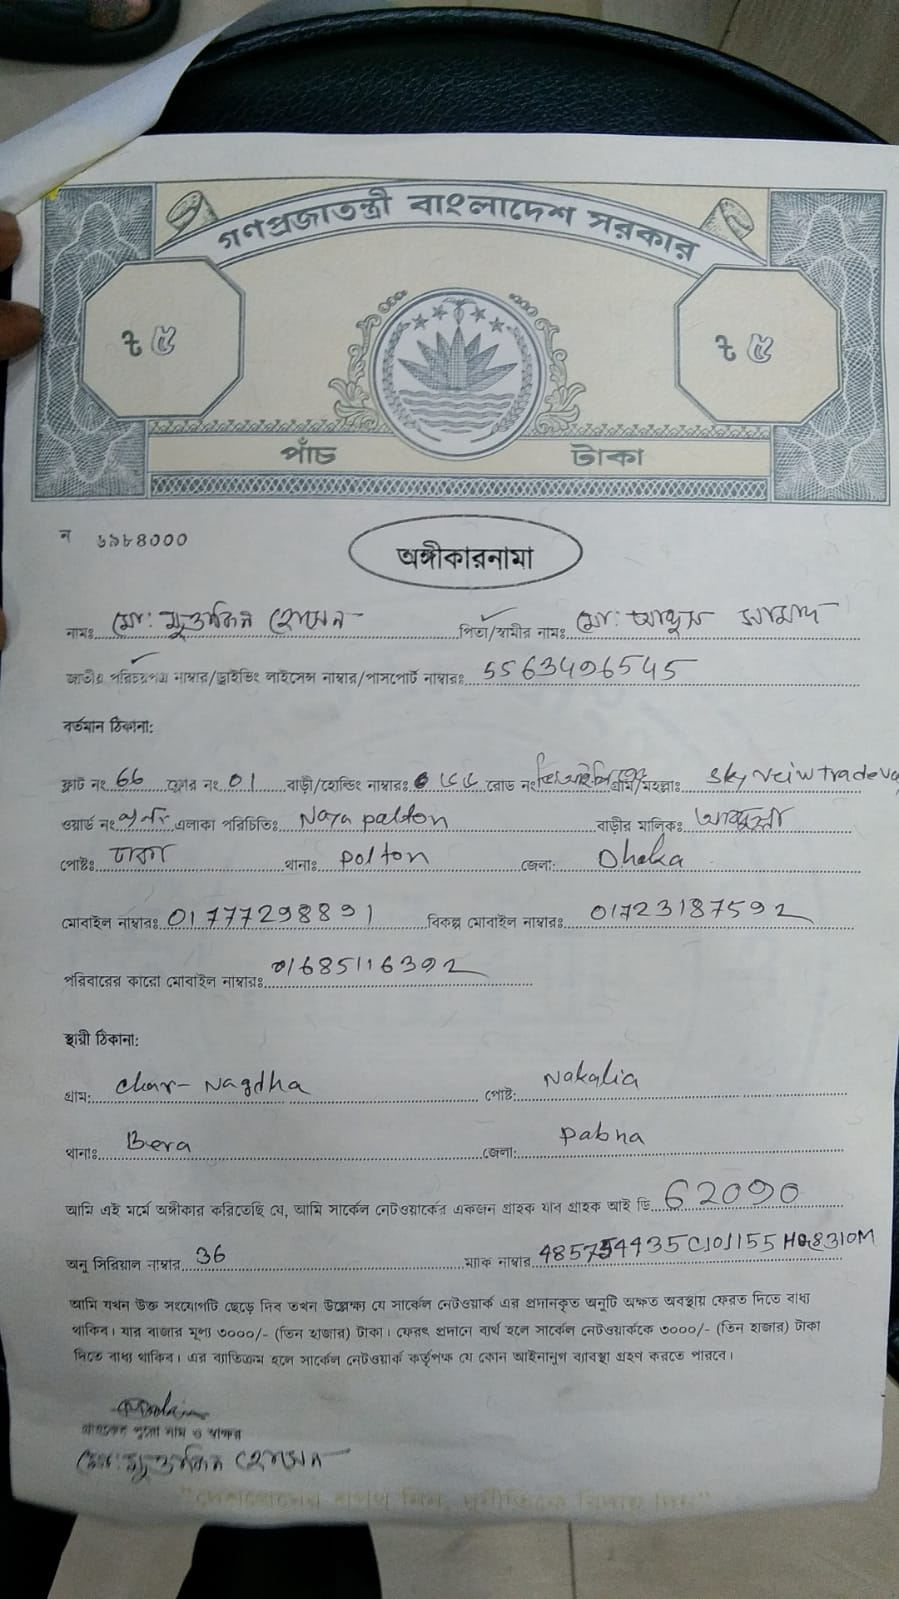 গণপ্রজাতন্ত্রী বাংলাদেশ সরকার
৳ ৫ ৳ ৫
পাঁচ টাকা
ন ৬৯৮৪০০০
অঙ্গীকারনামা
নামঃ মো: মুত্তাকিন হোসেন পিতা/স্বামীর নামঃ মো: আব্দুস সামাদ
জাতীয় পরিচয়পত্র নাম্বার/ড্রাইভিং লাইসেন্স নাম্বার/পাসপোর্ট নাম্বারঃ 5563496545
বর্তমান ঠিকানা:
ফ্লাট নং 66 ফ্লোর নং 01 বাড়ী/হোল্ডিং নাম্বারঃ রোড নং গ্রাম/মহল্লাঃ Sky veiw trade
ওয়ার্ড নং এলাকা পরিচিতিঃ Naya palton বাড়ীর মালিকঃ
পোষ্টঃ ঢাকা থানাঃ polton জেলা: Dhaka
মোবাইল নাম্বারঃ 01777298891 বিকল্প মোবাইল নাম্বারঃ 01723187592
পরিবারের কারো মোবাইল নাম্বারঃ 01685116392
স্থায়ী ঠিকানা:
গ্রাম: Char-Nagdha পোষ্ট: Nakalia
থানাঃ Bera জেলা: Pabna
আমি এই মর্মে অঙ্গীকার করিতেছি যে, আমি সার্কেল নেটওয়ার্কের একজন গ্রাহক যার গ্রাহক আই ডি 62090
অনু সিরিয়াল নাম্বার 36 ম্যাক নাম্বার
আমি যখন উক্ত সংযোগটি ছেড়ে দিব তখন উল্লেক্ষ্য যে সার্কেল নেটওয়ার্ক এর প্রদানকৃত অনুটি অক্ষত অবস্থায় ফেরত দিতে বাধ্য
থাকিব। যার বাজার মূল্য ৩০০০/- (তিন হাজার) টাকা। ফেরৎ প্রদানে ব্যর্থ হলে সার্কেল নেটওয়ার্ককে ৩০০০/- (তিন হাজার) টাকা
দিতে বাধ্য থাকিব। এর ব্যতিক্রম হলে সার্কেল নেটওয়ার্ক কর্তৃপক্ষ যে কোন আইনানুগ ব্যবস্থা গ্রহণ করতে পারবে।
গ্রাহকের পুরো নাম ও স্বাক্ষর
মো: মুত্তাকিন হোসেন